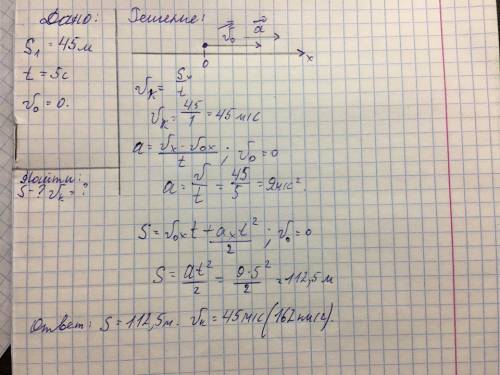 Дано:
S₁ = 45 м
t = 5 с
v₀ = 0.
Найти:
S - ? vₖ = ?
Решение:
v₀ a
0 x
vₖ = S₁/t
vₖ = 45/1 = 45 м/с
a = (vₓ - v₀ₓ)/t ; v₀ = 0
a = v/t = 45/5 = 9 м/с².
S = v₀ₓt + aₓt²/2 ; v₀ = 0
S = at²/2 = 9·5²/2 = 112,5 м
Ответ: S = 112,5 м. vₖ = 45 м/с (162 км/с).